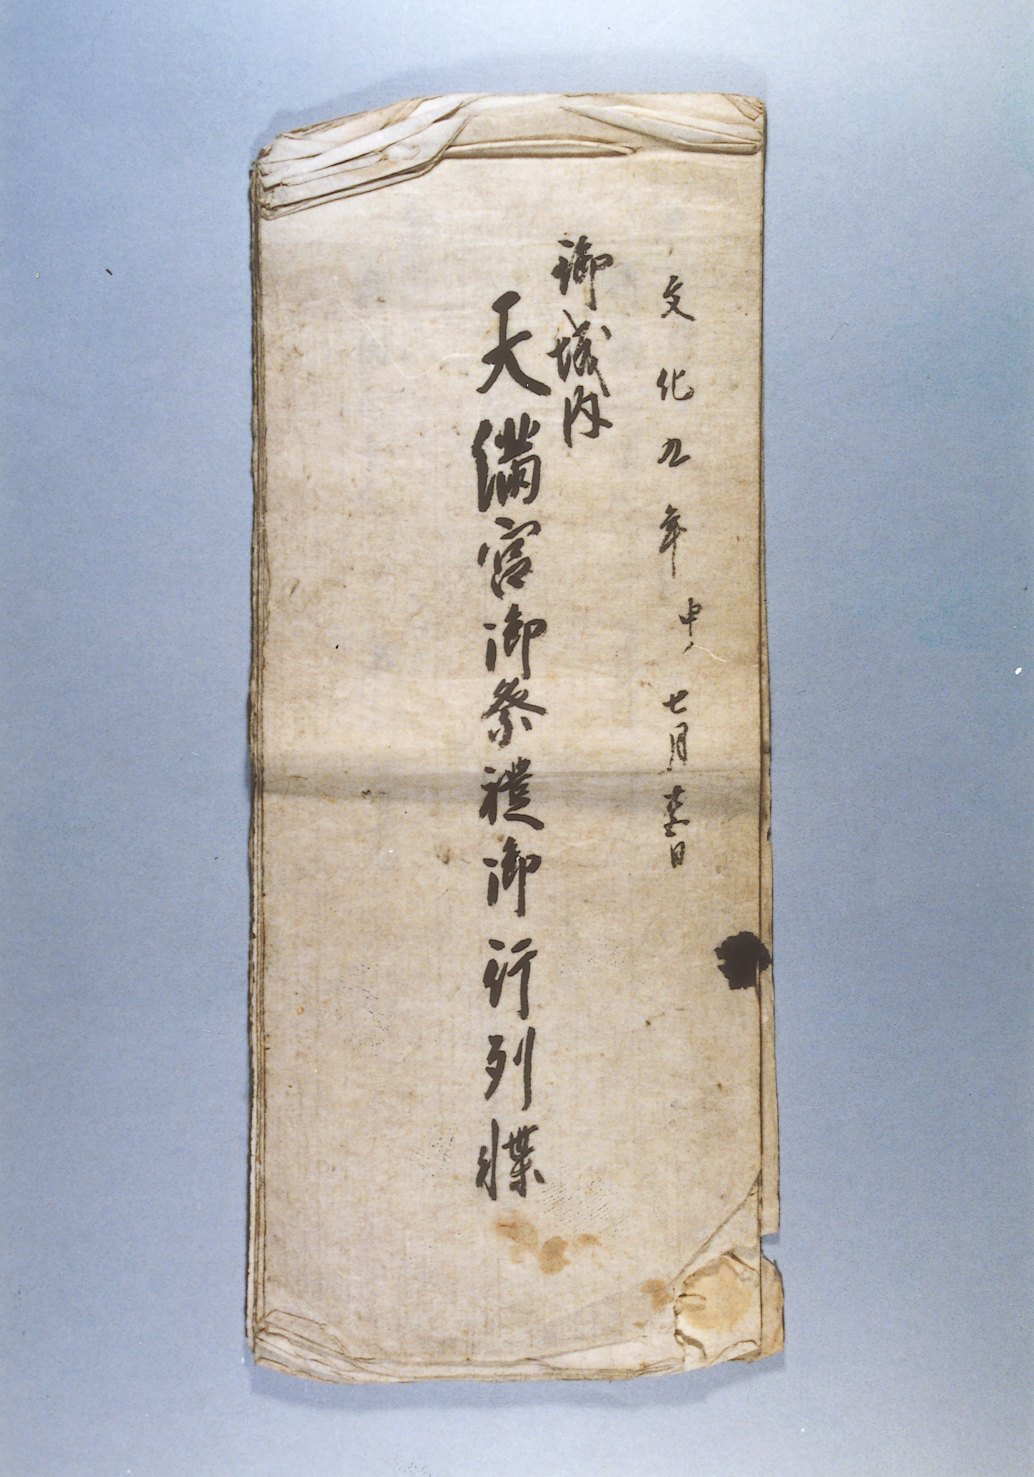 文化九年申七月廿五日
御城内
天満宮御祭禮御行列牒